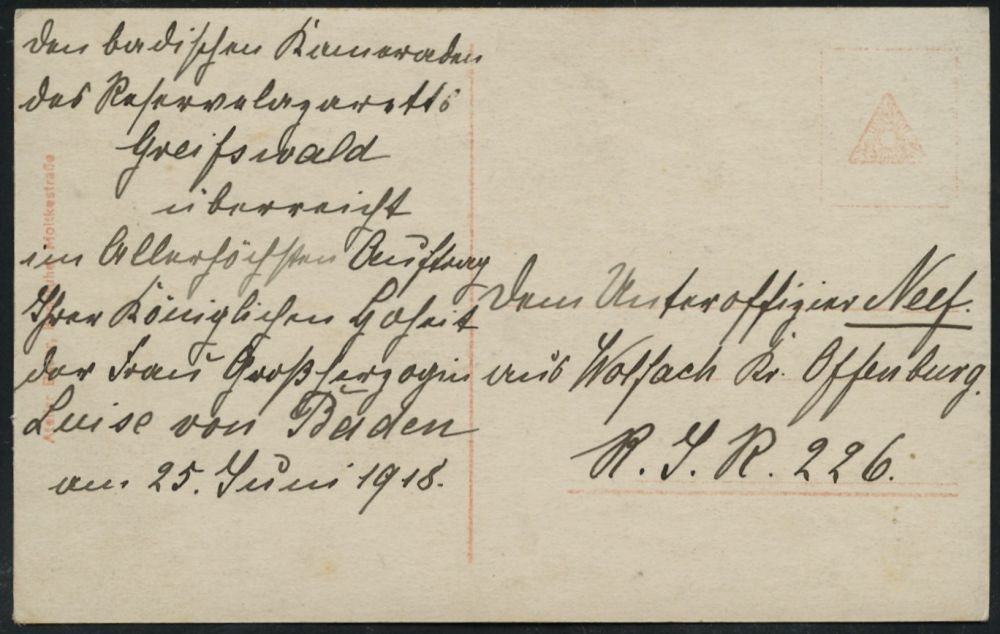 den badischen Kameraden
des Reservelazaretts
Greifswald
überreicht
im Allerhöchsten Auftrag
Ihrer Königlichen Hoheit
der Frau Großherzogin
Luise von Baden
am 25. Juni 1918.
Dem Unteroffizier Neef.
aus Wolfach Kr. Offenburg.
R. I. R. 226.
Moltkestraße